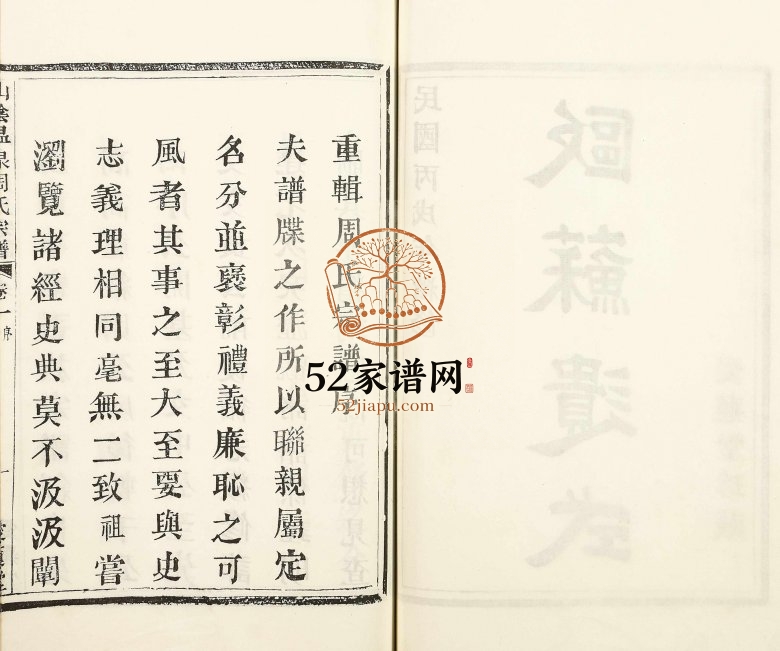 重輯周氏宗譜序
夫譜牒之作所以聯親屬定
名分並褒彰禮義廉恥之可
風者其事之至大至要與史
志義理相同毫無二致祖嘗
瀏覽諸經史典莫不汲汲闡
山陰温泉周氏宗譜
卷一
序
一
民國丙戌
歐蘇遺式
52家谱网
52jiapu.com